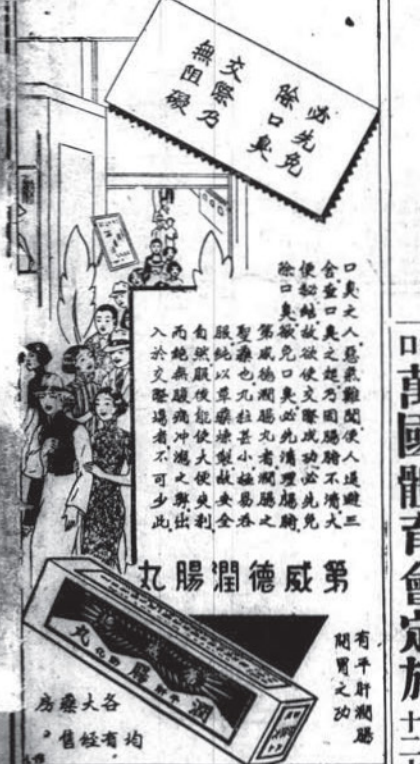 必先免
除口臭
交際乃
無阻礙
口臭之人。惡氣難聞使人退避三
舍查口臭之起乃因腸臟不清大
便秘結故欲使交際成功必先免
除口臭欲免口臭必先清理腸臟
第威德潤腸丸者潤腸之
聖藥也丸粒甚小極易吞
服純以草藥煉製故安全
自然服後能使大便爽利
而絕無腹痛冲瀉之弊出
入於交際場者不可少此
第威德潤腸丸
有平肝潤腸
開胃之功
潤腸丸
各大藥房
均有經售
萬國體育會定於廿